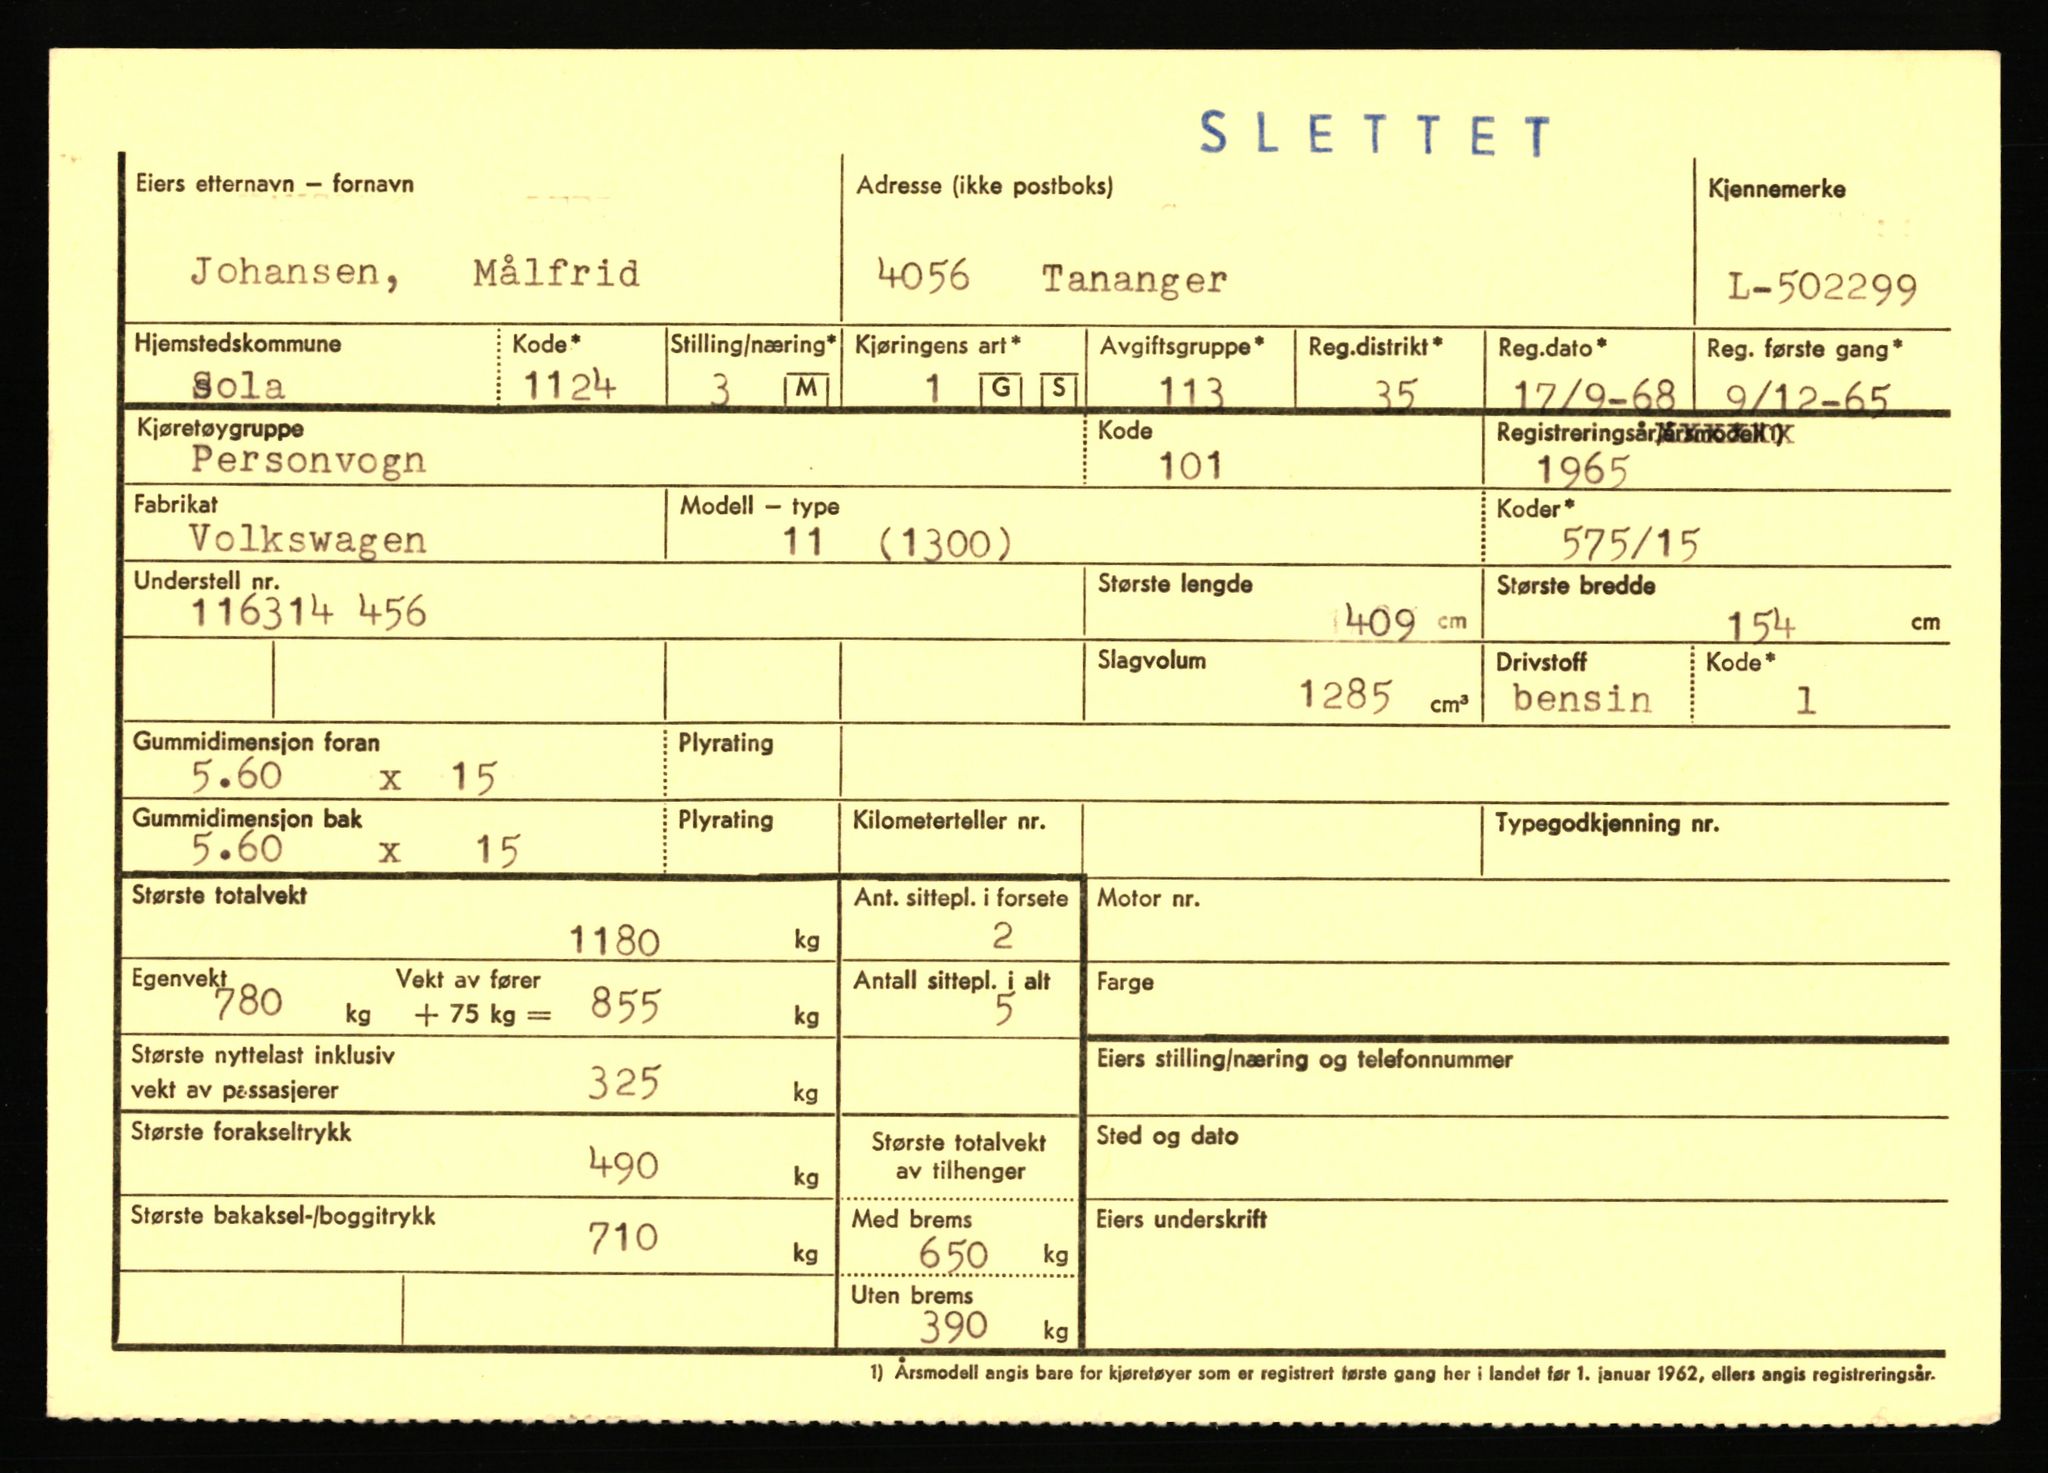 SLETTET
Eiers etternavn – fornavn
Johansen, Målfrid
Adresse (ikke postboks)
4056 Tananger
Kjennemerke
L-502299
Hjemstedskommune
Sola
Kode*
1124
Stilling/næring*
3 M
Kjøringens art*
1 G S
Avgiftsgruppe*
113
Reg.distrikt*
35
Reg.dato*
17/9-68
Reg. første gang*
9/12-65
Kjøretøygruppe
Personvogn
Kode
101
Registreringsår/årsmodell 1)
1965
Fabrikat
Volkswagen
Modell – type
11 (1300)
Koder*
575/15
Understell nr.
116314 456
Største lengde
409 cm
Største bredde
154 cm
Slagvolum
1285 cm³
Drivstoff
bensin
Kode*
1
Gummidimensjon foran
5.60 x 15
Plyrating
Gummidimensjon bak
5.60 x 15
Plyrating
Kilometerteller nr.
Typegodkjenning nr.
Største totalvekt
1180 kg
Ant. sittepl. i forsete
2
Motor nr.
Egenvekt
780 kg
Vekt av fører
+ 75 kg = 855 kg
Antall sittepl. i alt
5
Farge
Største nyttelast inklusiv
vekt av passasjerer
325 kg
Eiers stilling/næring og telefonnummer
Største forakseltrykk
490 kg
Største totalvekt
av tilhenger
Sted og dato
Største bakaksel-/boggitrykk
710 kg
Med brems
650 kg
Eiers underskrift
Uten brems
390 kg
1) Årsmodell angis bare for kjøretøyer som er registrert første gang her i landet før 1. januar 1962, ellers angis registreringsår.